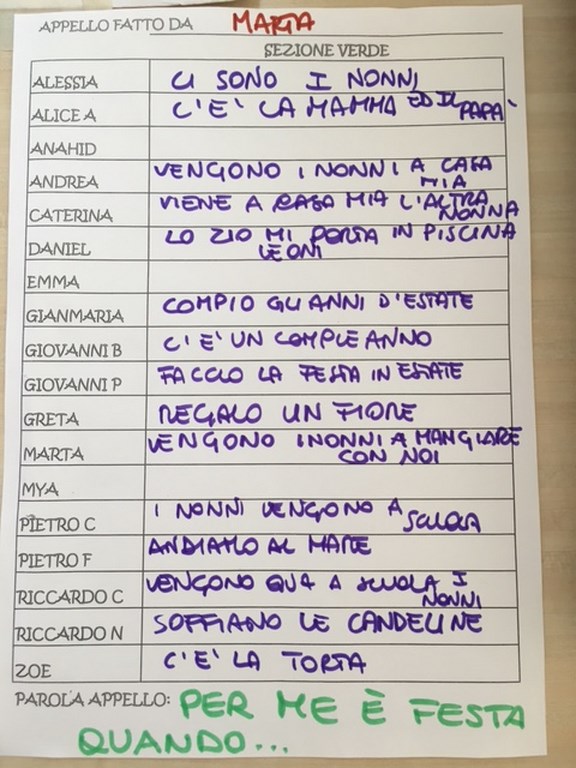 APPELLO FATTO DA MARTA
SEZIONE VERDE
ALESSIA CI SONO I NONNI
ALICE A C'E' LA MAMMA ED IL PAPA'
ANAHID
ANDREA VENGONO I NONNI A CASA
MIA
CATERINA VIENE A CASA MIA L'ALTRA
NONNA
DANIEL LO ZIO MI PORTA IN PISCINA
LEONI
EMMA
GIANMARIA COMPIO GLI ANNI D'ESTATE
GIOVANNI B C'E' UN COMPLEANNO
GIOVANNI P FACCIO LA FESTA IN ESTATE
GRETA REGALO UN FIORE
MARTA VENGONO I NONNI A MANGIARE
CON NOI
MYA
PIETRO C I NONNI VENGONO A SCUOLA
PIETRO F ANDIAMO AL MARE
RICCARDO C VENGONO QUA A SCUOLA I
NONNI
RICCARDO N SOFFIANO LE CANDELINE
ZOE C'E' LA TORTA
PAROLA APPELLO: PER ME È FESTA
QUANDO...